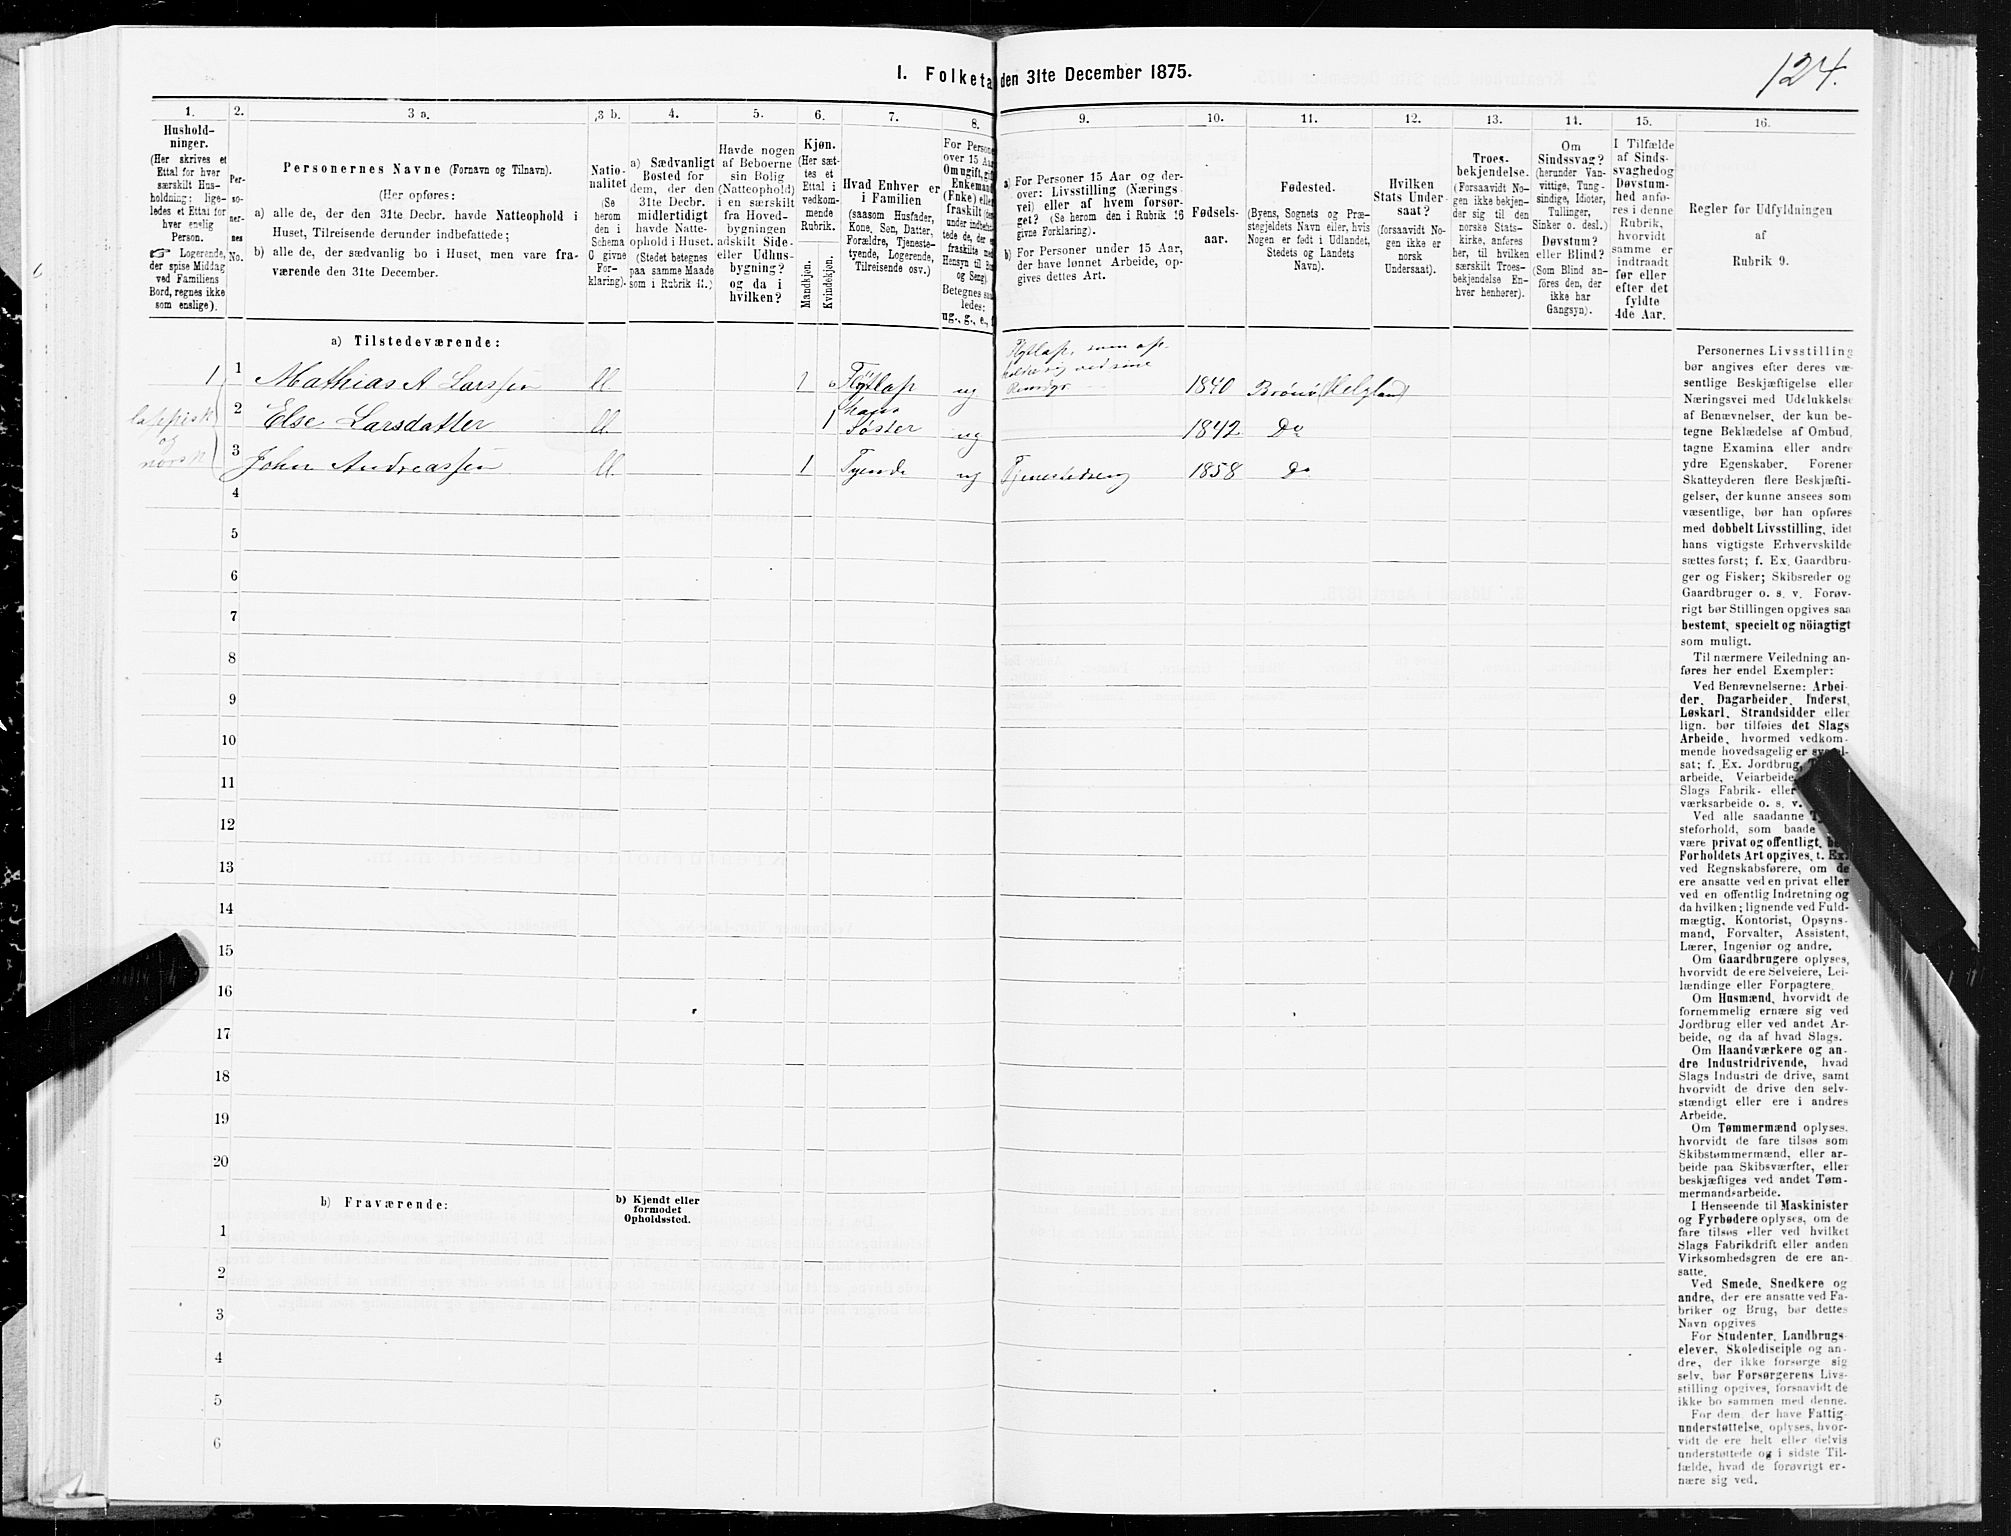 124.
I. Folketa den 31te December 1875.
1. 2. 3 a. 3 b. 4. 5. 6. 7. 8. 9. 10. 11. 12. 13. 14. 15. 16.
Hushold-
ninger.
(Her skrives et
Ettal for hver
særskilt Hus-
holdning; lige-
ledes et Ettal for
hver enslig
Person.
☞ Logerende,
der spise Middag
ved Familiens
Bord, regnes ikke
som enslige).
Per-
so-
ner-
nes
No.
Personernes Navne (Fornavn og Tilnavn).
(Her opføres:
a) alle de, der den 31te Decbr. havde Natteophold i
Huset, Tilreisende derunder indbefattede;
b) alle de, der sædvanlig bo i Huset, men vare fra-
værende den 31te December.
Natio-
nalitet
(Se
herom
den i
Schema
C givne
For-
klaring).
a) Sædvanligt
Bosted for
dem, der den
31te Decbr.
midlertidigt
havde Natte-
ophold i Huset.
(Stedet betegnes
paa samme Maade
som i Rubrik 11.)
Havde nogen
af Beboerne
sin Bolig
(Natteophold)
i en særskilt
fra Hoved-
bygningen
adskilt Side-
eller Udhus-
bygning?
og da i
hvilken?
Kjøn.
(Her sæt-
tes et
Ettal i
vedkom-
mende
Rubrik.
Mandkjøn.
Kvindekjøn.
Hvad Enhver er
i Familien
(saasom Husfader,
Kone, Søn, Datter,
Forældre, Tjeneste-
tyende, Logerende,
Tilreisende osv.)
For Persone
over 15 Aar
Om ugift, gift
Enkemand
(Enke) eller
fraskilt
under indbefat-
tede de, der e
fraskilte med
Hensyn til Bo
og Seng).
Betegnes saa
ledes:
ug., g., e., f
a) For Personer 15 Aar og der-
over: Livsstilling (Nærings
vei) eller af hvem forsør-
get? (Se herom den i Rubrik 16
givne Forklaring).
b) For Personer under 15 Aar,
der have lønnet Arbeide, op-
gives dettes Art.
Fødsels-
aar.
Fødested.
(Byens, Sognets og Præ-
stegjeldets Navn eller, hvis
Nogen er født i Udlandet,
Stedets og Landets
Navn).
Hvilken
Stats Under
saat?
(forsaavidt No-
gen ikke er
norsk
Undersaat).
Troes-
bekjendelse.
(Forsaavidt No-
gen ikke bekjen-
der sig til den
norske Stats-
kirke, anføres
her, til hvilken
særskilt Troes-
bekjendelse En-
hver henhører).
Om
Sindssvag?
(herunder Van-
vittige, Tung-
sindige, Idioter,
Tullinger,
Sinker o. desl.)
Døvstum?
eller Blind?
(Som Blind an-
føres den, der
ikke har
Gangsyn).
I Tilfælde
af Sinds-
svaghed og
Døvstum-
hed anfø-
res i denne
Rubrik,
hvorvidt
samme er
indtraadt
før eller
efter det
fyldte
4de Aar.
Regler for Udfyldningen
af
Rubrik 9.
a) Tilstedeværende:
1 1 Mathias A Larssen 1 Fjetlap ug Fjetlap, som op-
holder sig ved sine
Rensdyr 1840 Brønø (Helgeland)
lappisk
og
norsk
2 Else Larsdatter 1 Hans
Søster ug 1842 Do
3 John Andreassen 1 Tyende ug Tjenestedreng 1858 Do
4
5
6
7
8
9
10
11
12
13
14
15
16
17
18
19
20
b) Fraværende:
b) Kjendt eller
formodet
Opholdssted.
1
2
3
4
5
6
Personernes Livsstilling
bør angives efter deres væ-
sentlige Beskjæftigelse eller
Næringsvei med Udelukkelse
af Benævnelser, der kun be-
tegne Beklædelse af Ombud,
tagne Examina eller andre
ydre Egenskaber. Forener
Skatteyderen flere Beskjæfti-
gelser, der kunne ansees som
væsentlige, bør han opføres
med dobbelt Livsstilling, idet
hans vigtigste Erhvervskilde
sættes først; f. Ex. Gaardbru-
ger og Fisker; Skibsreder og
Gaardbruger o. s. v. Forøv-
rigt bør Stillingen opgives saa
bestemt, specielt og nøiagtigt
som muligt.
Til nærmere Veiledning an-
føres her endel Exempler:
Ved Benævnelserne: Arbei-
der, Dagarbeider, Inderst,
Løskarl, Strandsidder eller
lign. bør tilføies det Slags
Arbeide, hvormed vedkom-
mende hovedsagelig er syssel-
sat; f. Ex. Jordbrug,
arbeide, Veiarbeide,
Slags Fabrik- eller
værksarbeide o. s. v.
Ved alle saadanne
steforhold, som baade
være privat og offentligt,
Forholdets Art opgives, t. Ex.
ved Regnskabsførere, om de
ere ansatte ved en privat eller
ved en offentlig Indretning og
da hvilken; lignende ved Fuld-
mægtig, Kontorist, Opsyns-
mand, Forvalter, Assistent,
Lærer, Ingeniør og andre.
Om Gaardbrugere oplyses,
hvorvidt de ere Selveiere, Lei-
lændinge eller Forpagtere.
Om Husmænd, hvorvidt de
fornemmelig ernære sig ved
Jordbrug eller ved andet Ar-
beide, og da af hvad Slags.
Om Haandværkere og an-
dre Industridrivende, hvad
Slags Industri de drive, samt
hvorvidt de drive den selv-
stændigt eller ere i andres
Arbeide.
Om Tømmermænd oplyses.
hvorvidt de fare tilsøs som
Skibstømmermænd, eller ar-
beide paa Skibsværfter, eller
beskjæftiges ved andet Tøm-
mermandsarbeide.
I Henseende til Maskinister
og Fyrbødere oplyses, om de
fare tilsøs eller ved hvilket
Slags Fabrikdrift eller anden
Virksomhedsgren de ere an-
satte.
Ved Smede, Snedkere og
andre, der ere ansatte ved Fa-
briker og Brug, bør dettes
Navn opgives
For Studenter, Landbrugs-
elever, Skoledisciple og an-
dre, der ikke forsørge sig
selv, bør Forsørgerens Livs-
stilling opgives, forsaavidt de
ikke bo sammen med denne.
For dem, der have Fattig-
understøttelse, oplyses, hvor-
vidt de ere helt eller delvis
understøttede og i sidste Til-
fælde, hvad de forøvrigt er-
nære sig ved.